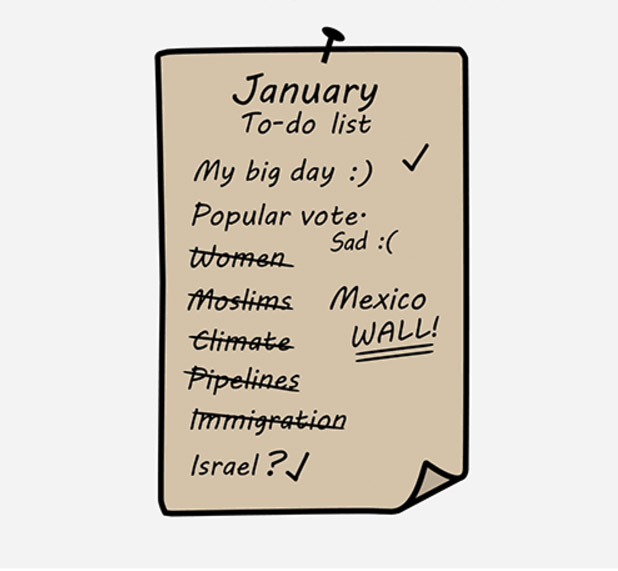 January
To-do list
My big day :) ✓
Popular vote.
Sad :(
Women
Moslims
Mexico
WALL!
Climate
Pipelines
Immigration
Israel ?✓